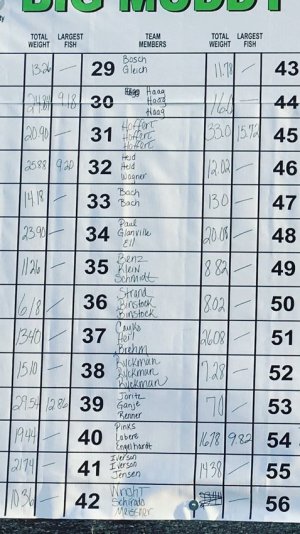 BIG MUDDY
TOTAL WEIGHT LARGEST FISH TEAM MEMBERS TOTAL WEIGHT LARGEST FISH
13.26 — 29 Bosch Gleich 11.78 — 43
9.18 30 Haag Haag Haag 44
20.90 — 31 Hoffert Hoffert Hoffert 33.0 15.72 45
25.88 9.20 32 Heid Held Wagner 12.02 — 46
14.18 — 33 Bach Bach 13.0 — 47
23.90 — 34 Paul Glanville Ell 20.08 — 48
11.26 — 35 Benz Klein Schmidt 8.82 — 49
6.18 — 36 Strand Binstock Binstock 8.02 — 50
13.40 — 37 Heil Brehm 26.08 — 51
15.10 — 38 Ryckman Ryckman Ryckman 7.28 — 52
29.54 12.86 39 Joritz Ganje Renner 7.0 — 53
19.44 — 40 Pinks Labere Engelhardt 16.78 9.82 54
21.74 — 41 Iverson Iverson Jensen 14.38 — 55
10.36 — 42 Wright Schirado Meissner — 56